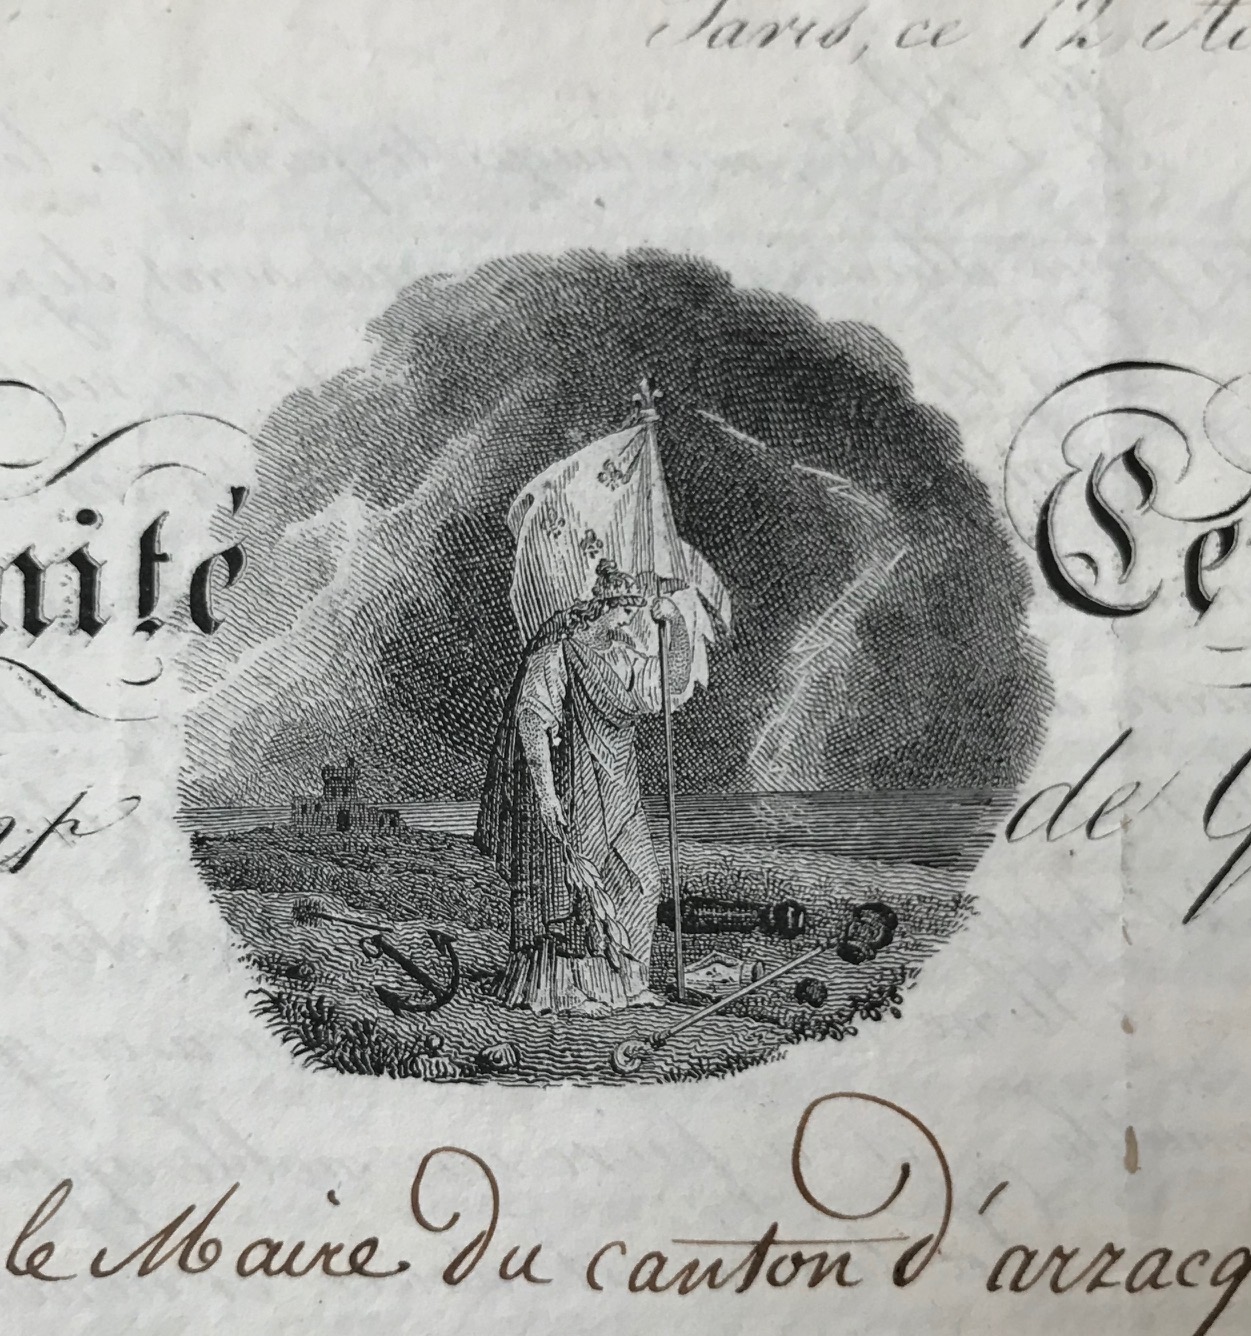 Paris, ce 12
mité Ce
de
le Maire du canton d'arzacq